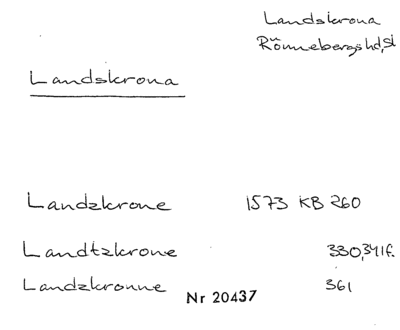 Landskrona
Rönnebergs hd, Sk
Landskrona
Landzkrone 1573 KB 260
Landtzkrone 330, 341f.
Landzkronne 361
Nr 20437